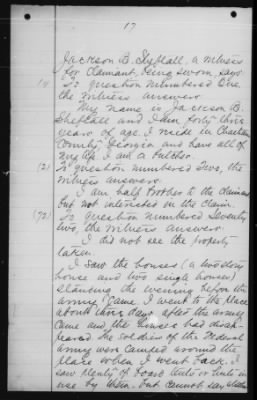 17
Jackson B. Sheftall, a witness
for Claimant, being sworn says:
(1) To question numbered One
the witness answers:
My name is Jackson B.
Sheftall and I am forty three
years of age. I reside in Chatham
County, Georgia and have all of
my life. I am a butcher.
(2) To question numbered Two, the
witness answers:
I am half brother to the claimant
but not interested in the claim.
(72) To question numbered Seventy
two, the witness answers:
I did not see the property
taken.
I saw the houses (a two story
house and two single houses)
standing the evening before the
army came. I went to the place
about three days after the army
came and the houses had disap-
peared. The soldiers of the Federal
Army were camped around the
place when I went back. I
saw plenty of board tents or huts in
use by them. but cannot say whether